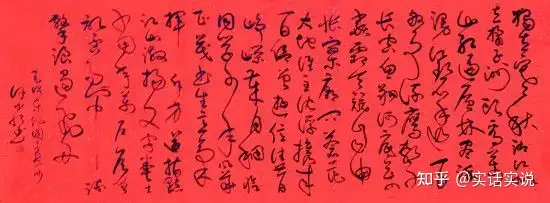 独立寒秋湘江北
去橘子洲头看万
山红遍层林尽染
漫江碧透百
舸争流鹰击
长空鱼翔浅底万
类霜天竞自由
怅寥廓问苍茫
大地谁主沉浮携来
百侣曾游忆往昔
峥嵘岁月稠恰
同学少年风华
正茂书生意气
挥斥方遒指点
江山激扬文字粪土
当年万户侯
知乎 @实话实说